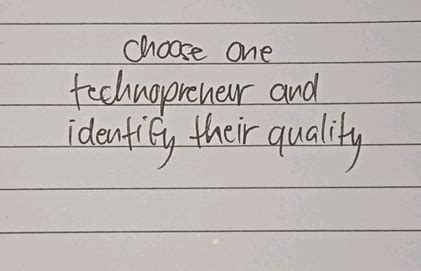 choose one
technopreneur and
identify their quality